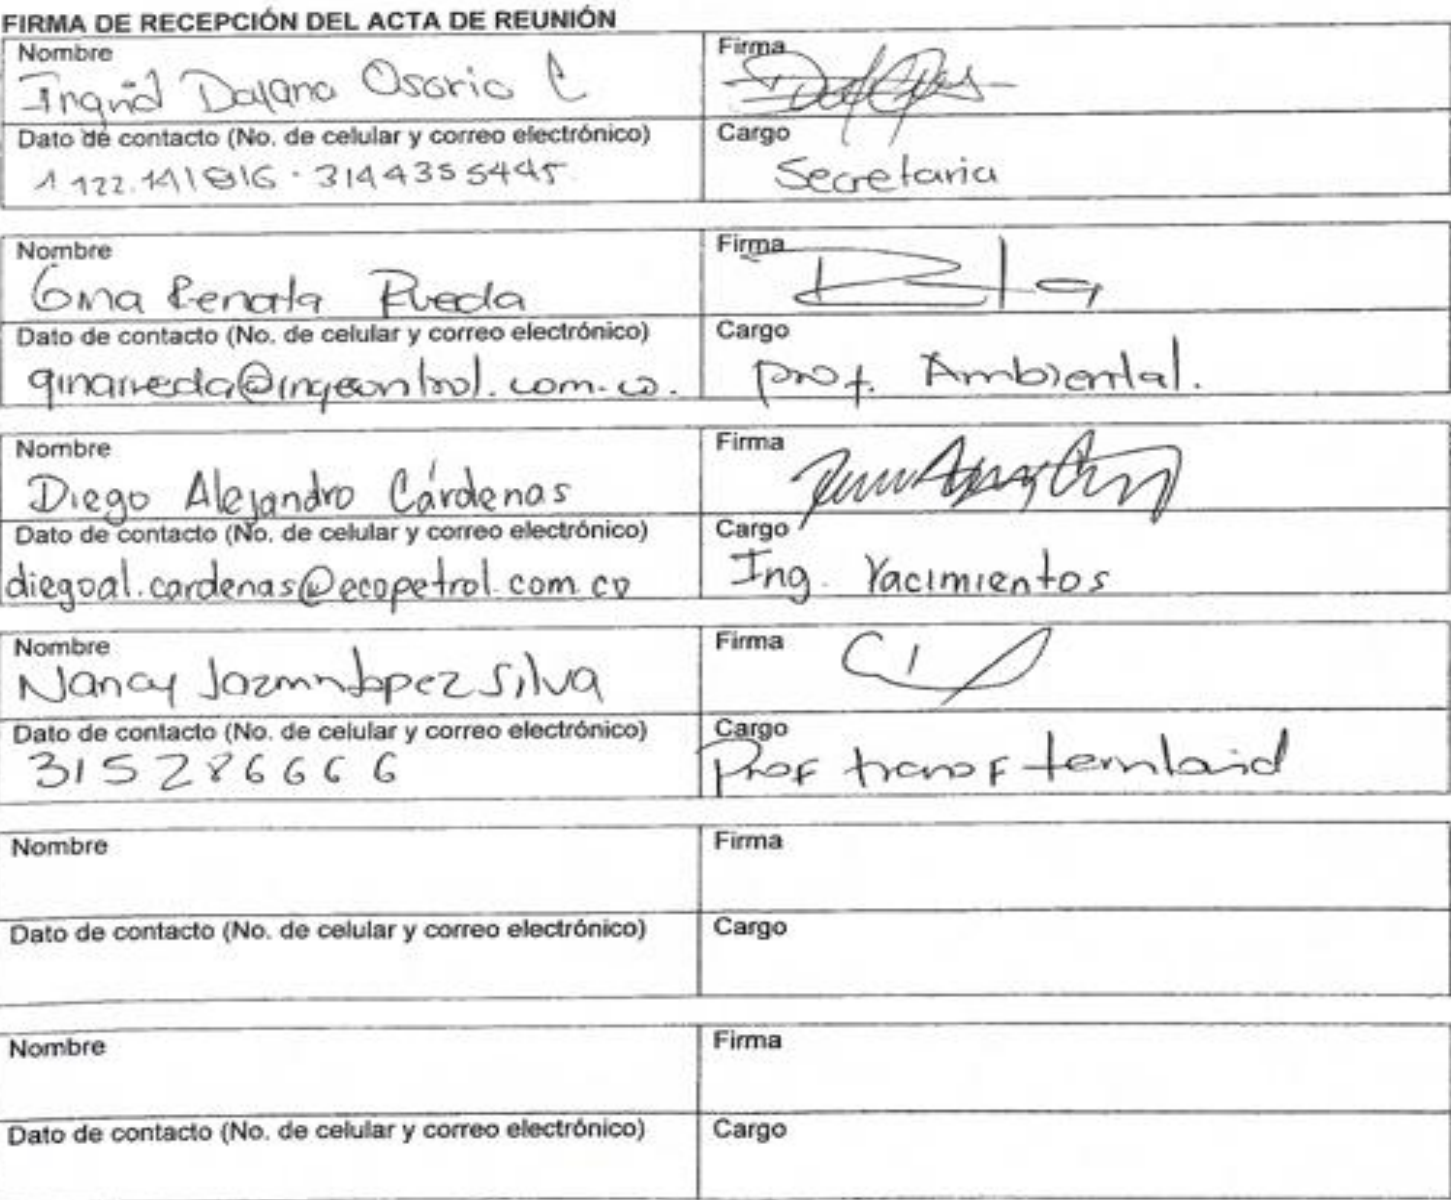 FIRMA DE RECEPCIÓN DEL ACTA DE REUNIÓN
Nombre
Firma
Ingrid Dayana Osorio C
Dato de contacto (No. de celular y correo electrónico)
Cargo
1.122.141816 · 3144355445
Secretaria
Nombre
Firma
Gina Renata Rueda
Dato de contacto (No. de celular y correo electrónico)
Cargo
ginarueda@ingecontrol.com.co.
prof. Ambiental.
Nombre
Firma
Diego Alejandro Cárdenas
Dato de contacto (No. de celular y correo electrónico)
Cargo
diegoal.cardenas@ecopetrol.com.co
Ing. Yacimientos
Nombre
Firma
Nancy Jazmin Lopez Silva
Dato de contacto (No. de celular y correo electrónico)
Cargo
315286666
Prof transf
Nombre
Firma
Dato de contacto (No. de celular y correo electrónico)
Cargo
Nombre
Firma
Dato de contacto (No. de celular y correo electrónico)
Cargo